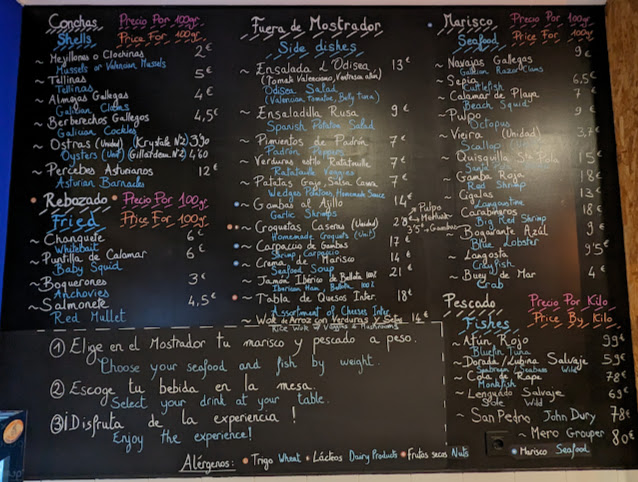 Conchas Precio Por 100gr.
Shells Price For 100gr.
~ Mejillones o Clochinas 2€
Mussels or Valencian Mussels
~ Tellinas 5€
Tellinas
~ Almejas Gallegas 4€
Galician Clams
~ Berberechos Gallegos 4,5€
Galician Cockles
~ Ostras (Unidad) (Krystale Nº2) 3,90
Oysters (Unit) (Gillardeau Nº2) 4,60
~ Percebes Asturianos 12€
Asturian Barnacles
Rebozado Precio Por 100gr.
Fried Price For 100gr.
~ Chanquete 6€
Whitebait
~ Puntilla de Calamar 6€
Baby Squid
~ Boquerones 3€
Anchovies
~ Salmonete 4,5€
Red Mullet
Fuera de Mostrador
Side dishes
~ Ensalada L'Odisea 13€
(Tomate Valenciano, Ventresca atún)
Odisea Salad
(Valencian Tomatoe, Belly tuna)
~ Ensaladilla Rusa 9€
Spanish Potatoe Salad
~ Pimientos de Padrón 7€
Padrón Peppers
~ Verduras estilo Ratatuille 9€
Ratatuille Veggies
~ Patatas Gajo, Salsa Casera 7€
Wedges Potatoes, Homemade Sauce
~ Gambas al Ajillo 14€
Garlic Shrimps
~ Croquetas Caseras (Unidad) 2'8€ Pulpo
Homemade Croquets (Unit) 3'5€ Gambas
~ Carpaccio de Gambas 17€
Shrimp Carpaccio
~ Crema de Marisco 14€
Seafood Soup
~ Jamón Ibérico de Bellota 100% 21€
Iberican Ham, Bellota 100%
~ Tabla de Quesos Inter. 18€
Assortment of Cheeses Inter.
~ Wok de Arroz con Verduras y Setas 14€
Rice Wok of Veggies & Mushrooms
Marisco Precio Por 100gr.
Seafood Price For 100gr.
~ Navajas Gallegas 9€
Galician Razor Clams
~ Sepia 6.5€
Cuttlefish
~ Calamar de Playa 7€
Beach Squid
~ Pulpo 9€
Octopus
~ Vieira (Unidad) 3,7€
Scallop
~ Quisquilla Sta Pola 15€
~ Gamba Roja 18€
Red Shrimp
~ Cigalas 13€
Langoustine
~ Carabineros 18€
Big Red Shrimp
~ Bogavante Azúl 9€
Blue Lobster
~ Langosta 9'5€
Crayfish
~ Buey de Mar 4€
Crab
Pescado Precio Por Kilo
Fishes Price By Kilo
~ Atún Rojo 99€
Bluefin Tuna
~ Dorada/Lubina Salvaje 59€
Seabream/Seabass Wild
~ Cola de Rape 78€
Monkfish
~ Lenguado Salvaje 63€
Sole Wild
~ San Pedro John Dory 78€
~ Mero Grouper 80€
① Elige en el Mostrador tu marisco y pescado a peso.
Choose your seafood and fish by weight.
② Escoge tu bebida en la mesa.
Select your drink at your table.
③ ¡Disfruta de la experiencia!
Enjoy the experience!
Alérgenos: Trigo Wheat Lácteos Dairy Products Frutos secos Nuts Marisco Seafood